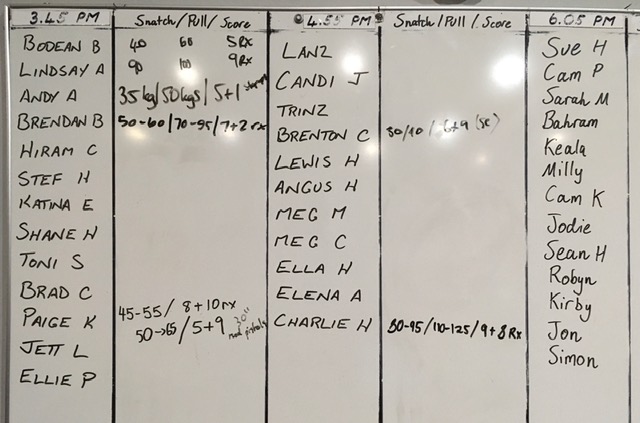 3.45 PM
Snatch/Pull/Score
BODEAN B 40 60 5Rx
LINDSAY A 90 100 9Rx
ANDY A 35kg/50kgs/5+1
BRENDAN B 50-60/70-95/7+2 rx
HIRAM C
STEF H
KATINA E
SHANE H
TONI S
BRAD C 45-55/ 8+10rx
PAIGE K 50→65/5+9 30"
JETT L
ELLIE P
4.55 PM
Snatch/Pull/Score
LANZ
CANDI J
TRINZ
BRENTON C
LEWIS H
ANGUS H
MEG M
MEG C
ELLA H
ELENA A
CHARLIE H 80-95/110-125/9+8 Rx
6.05 PM
Sue H
Cam P
Sarah M
Bahram
Keala
Milly
Cam K
Jodie
Sean H
Robyn
Kirby
Jon
Simon